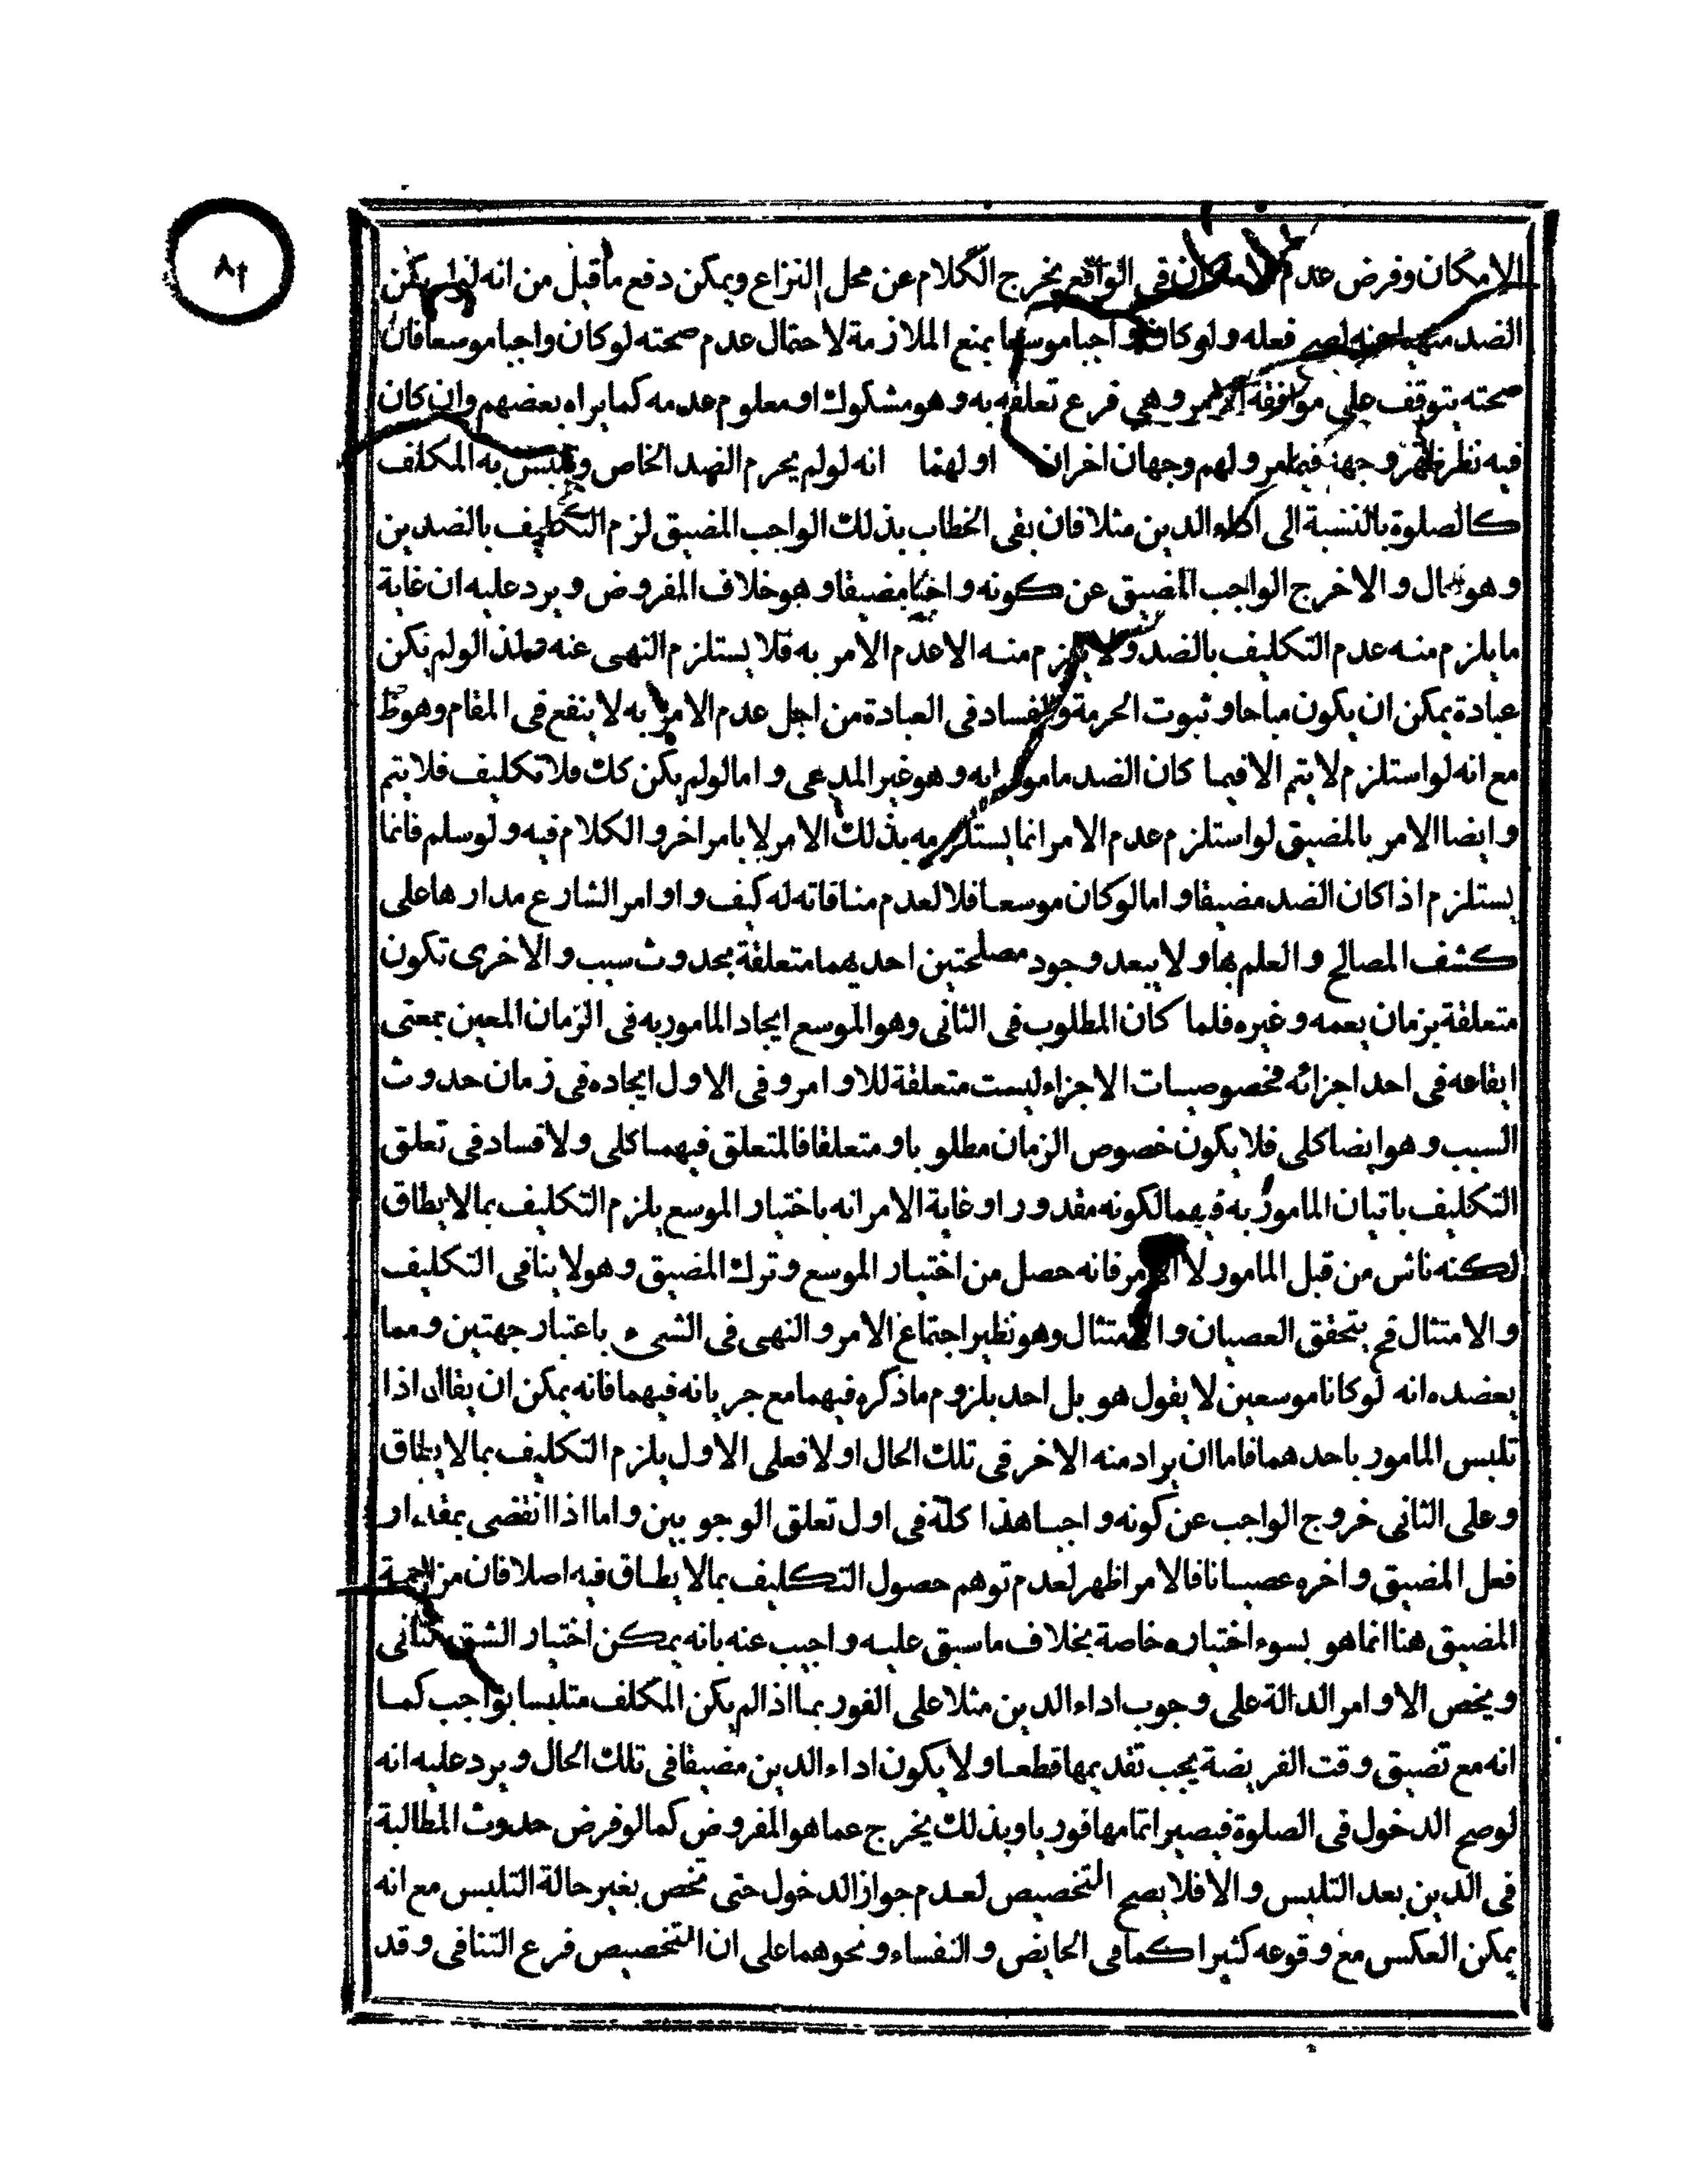 ٨٢
الامكان وفرض عدم الامكان فى الواقع يخرج الكلام عن محل النزاع ويمكن دفع ما قيل من انه لو لم يكن
الضد منهيا عنه لصح فعله ولو كان واجبا موسعا بمنع الملازمة لاحتمال عدم صحته لو كان واجبا موسعا فان
صحته يتوقف على موافقة الامر وهى فرع تعلقه به وهو مشكوك او معلوم عدمه كما يراه بعضهم وان كان
فيه نظر ظهر وجهه فيما مر ولهم وجهان اخران اولهما انه لو لم يحرم الضد الخاص وتلبس به المكلف
كالصلوة بالنسبة الى اداء الدين مثلا فان بقى الخطاب بذلك الواجب المضيق لزم التكليف بالضدين
وهو محال والا خرج الواجب المضيق عن كونه واجبا مضيقا وهو خلاف المفروض ويرد عليه ان غاية
ما يلزم منه عدم التكليف بالضد ولا يلزم منه الا عدم الامر به فلا يستلزم النهى عنه ولذا لو لم يكن
عبادة يمكن ان يكون مباحا وثبوت الحرمة والفساد فى العبادة من اجل عدم الامر به لا ينفع فى المقام وهو ظ
مع انه لو استلزم لا يتم الا فيما كان الضد مامورا به وهو غير المدعى واما لو لم يكن كك فلا تكليف فلا يتم
وايضا الامر بالمضيق لو استلزم عدم الامر انما يستلزمه بذلك الامر لا بامر اخر والكلام فيه ولو سلم فانما
يستلزم اذا كان الضد مضيقا واما لو كان موسعا فلا لعدم منافاته له كيف واوامر الشارع مدارها على
كشف المصالح والعلم بها ولا يبعد وجود مصلحتين احديهما متعلقة بحدوث سبب والاخرى تكون
متعلقة بزمان يعمه وغيره فلما كان المطلوب فى الثانى وهو الموسع ايجاد المامور به فى الزمان المعين بمعنى
ايقاعه فى احد اجزائه فخصوصيات الاجزاء ليست متعلقة للاوامر وفى الاول ايجاده فى زمان حدوث
السبب وهو ايضا كلى فلا يكون خصوص الزمان مطلوبا ومتعلقا فالمتعلق فيهما كلى ولا فساد فى تعلق
التكليف باتيان المامور به فيهما لكونه مقدورا وغاية الامر انه باختيار الموسع يلزم التكليف بما لا يطاق
لكنه ناش من قبل المامور لا الامر فانه حصل من اختيار الموسع وترك المضيق وهو لا ينافى التكليف
والامتثال فح يتحقق العصيان والامتثال وهو نظير اجتماع الامر والنهى فى الشىء باعتبار جهتين ومما
يعضده انه لو كانا موسعين لا يقول هو بل احد بلزوم ما ذكره فيهما مع جريانه فيهما فانه يمكن ان يقال اذا
تلبس المامور باحدهما فاما ان يراد منه الاخر فى تلك الحال او لا فعلى الاول يلزم التكليف بما لا يطاق
وعلى الثانى خروج الواجب عن كونه واجبا هذا كله فى اول تعلق الوجوبين واما اذا انقضى بمقدار
فعل المضيق واخره عصيانا فالامر اظهر لعدم توهم حصول التكليف بما لا يطاق فيه اصلا فان مزاحمة
المضيق هنا انما هو بسوء اختياره خاصة بخلاف ما سبق عليه واجيب عنه بانه يمكن اختيار الشق الثانى
ويخص الاوامر الدالة على وجوب اداء الدين مثلا على الفور بما اذا لم يكن المكلف متلبسا بواجب كما
انه مع تضيق وقت الفريضة يجب تقديمها قطعا ولا يكون اداء الدين مضيقا فى تلك الحال ويرد عليه انه
لو صح الدخول فى الصلوة فيصير اتمامها فوريا وبذلك يخرج عما هو المفروض كما لو فرض حدوث المطالبة
فى الدين بعد التلبس والا فلا يصح التخصيص لعدم جواز الدخول حتى تخص بغير حالة التلبس مع انه
يمكن العكس مع وقوعه كثيرا كما فى الحايض والنفساء ونحوهما على ان التخصيص فرع التنافى وقد